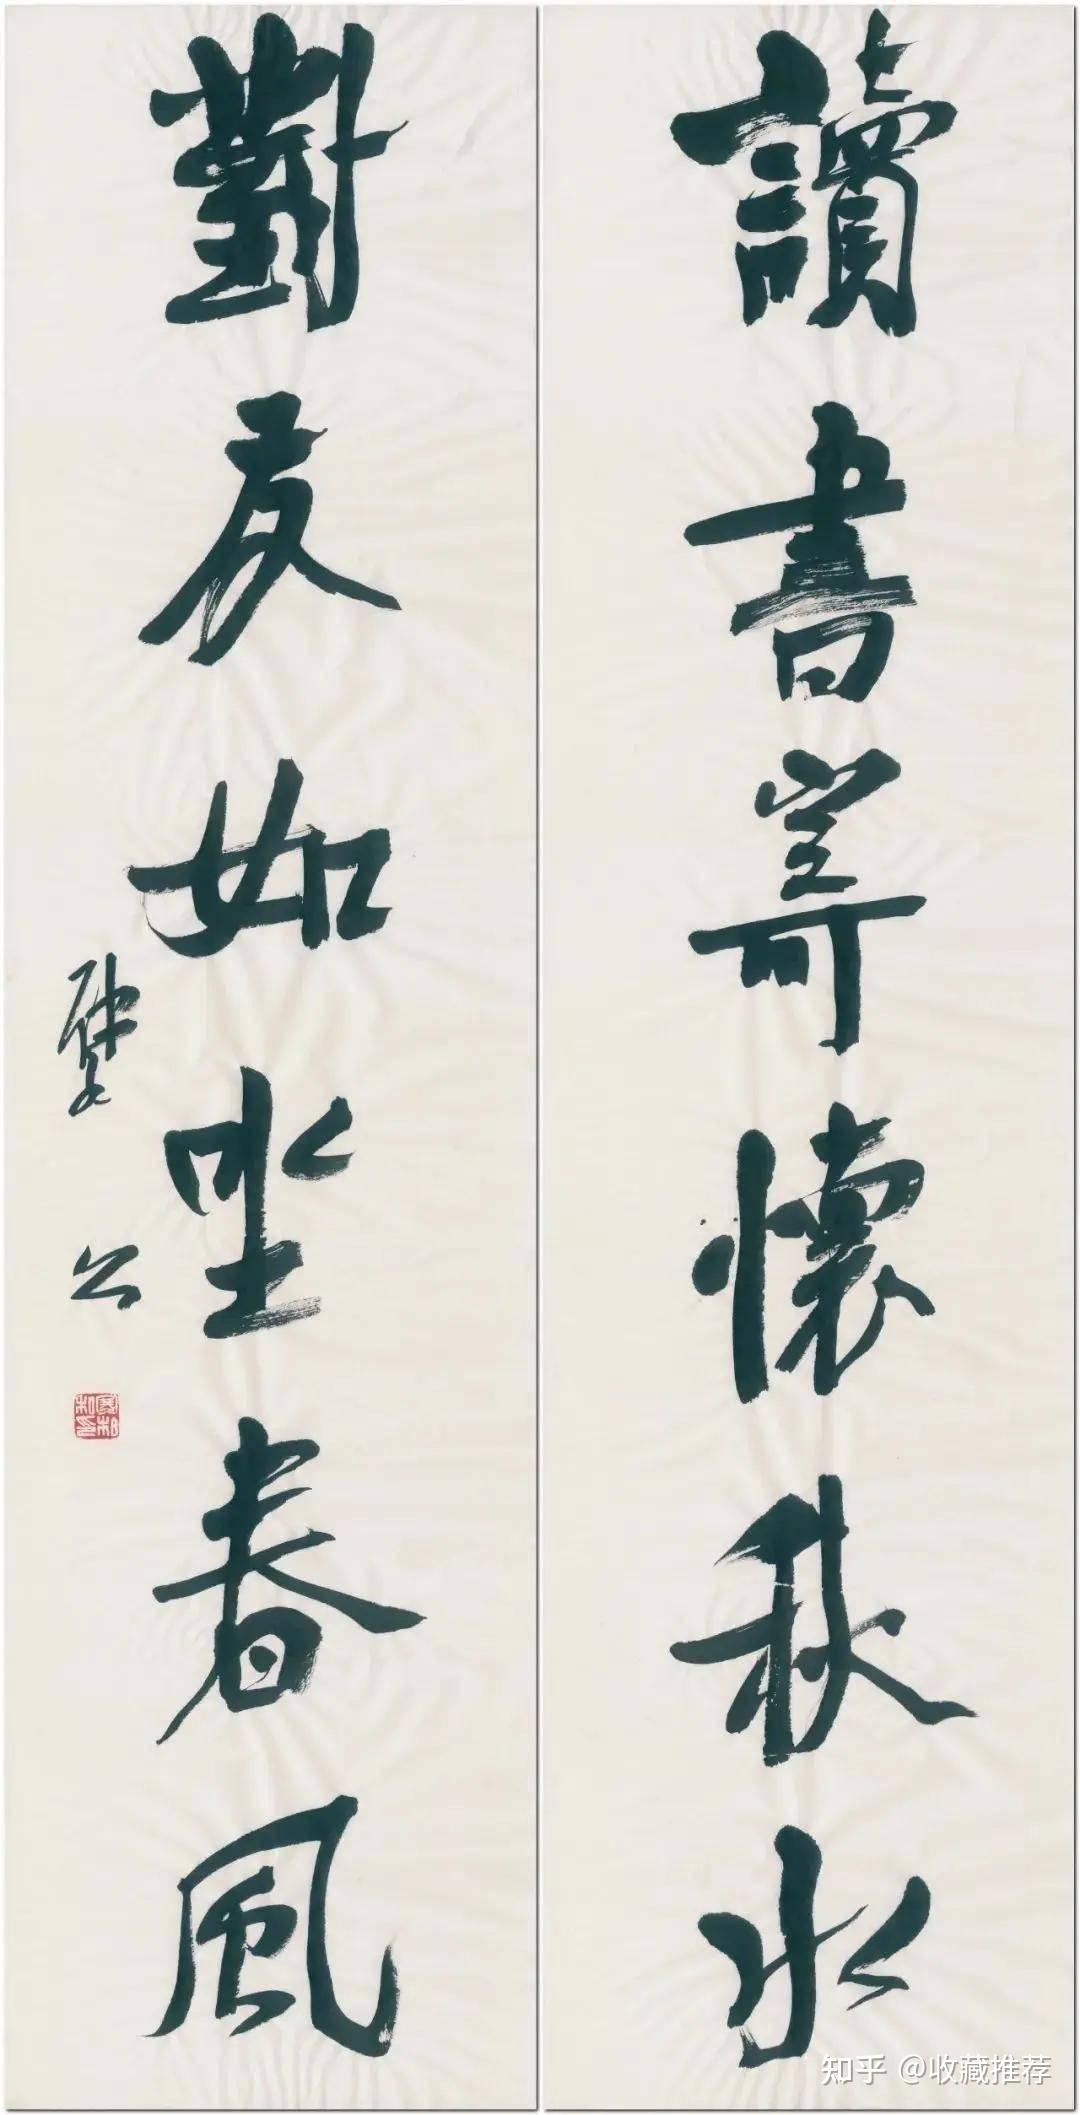 讀書寄懷秋水
對友如坐春風
公
知乎 @收藏推荐